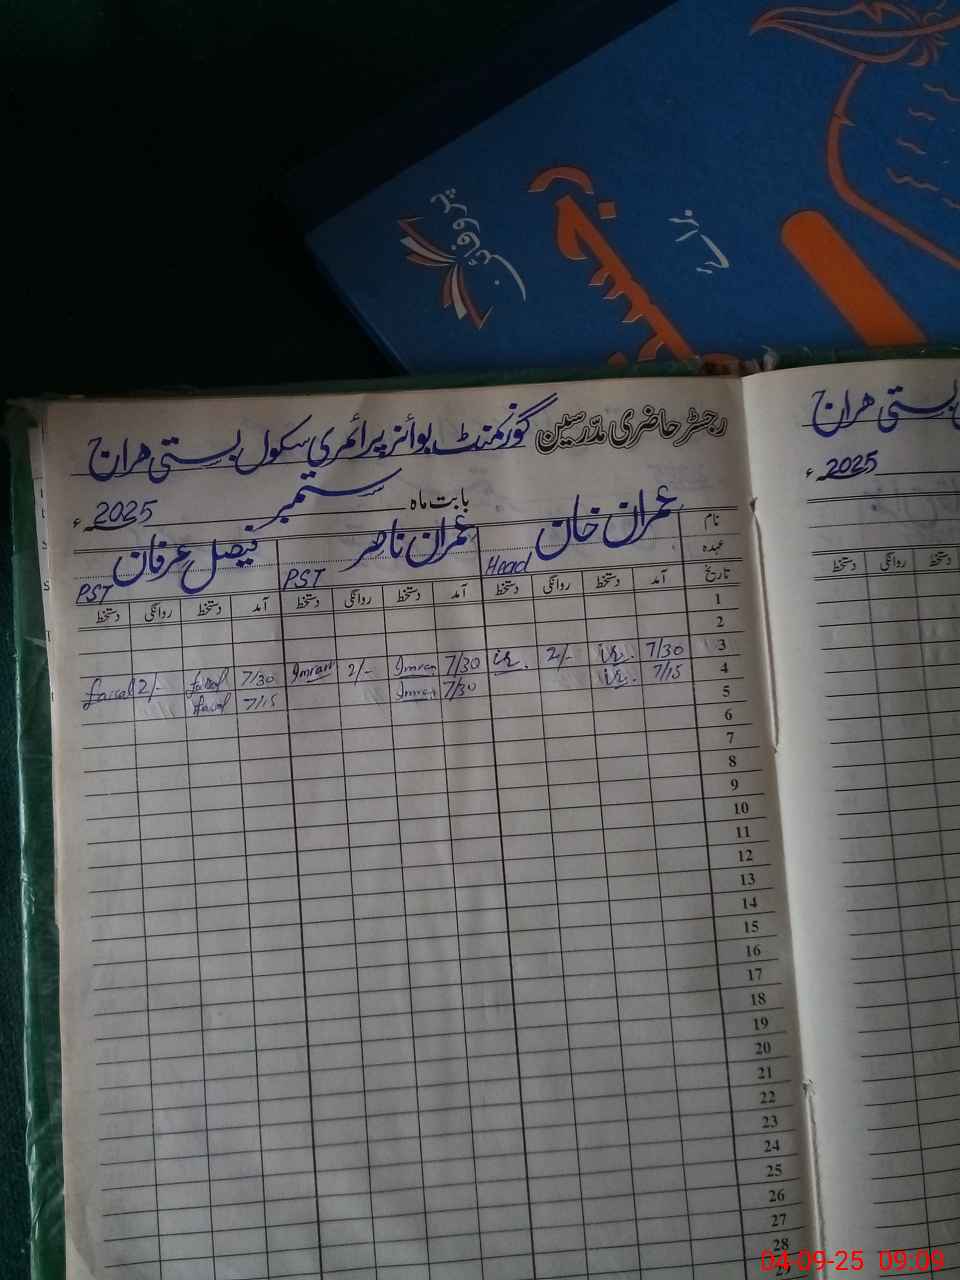 پروفائن
رجسٹر
رجسٹر حاضری مدرسین گورنمنٹ بوائز پرائمری سکول بستی ھراج
بستی ھراج
بابت ماہ ستمبر 2025ء
2025ء
نام عمران خان عمران ناصر فیصل عرفان
عہدہ Head PST PST
تاریخ آمد دستخط روانگی دستخط آمد دستخط روانگی دستخط آمد دستخط روانگی دستخط
روانگی دستخط دستخط
1
2
3 7/30 2/- 7/30 Imran 2/- Imran 7/30 faisal 2/- faisal
4 7/15 7/30 Imran 7/15 faisal
5
6
7
8
9
10
11
12
13
14
15
16
17
18
19
20
21
22
23
24
25
26
27
28
29
04-09-25 09:09